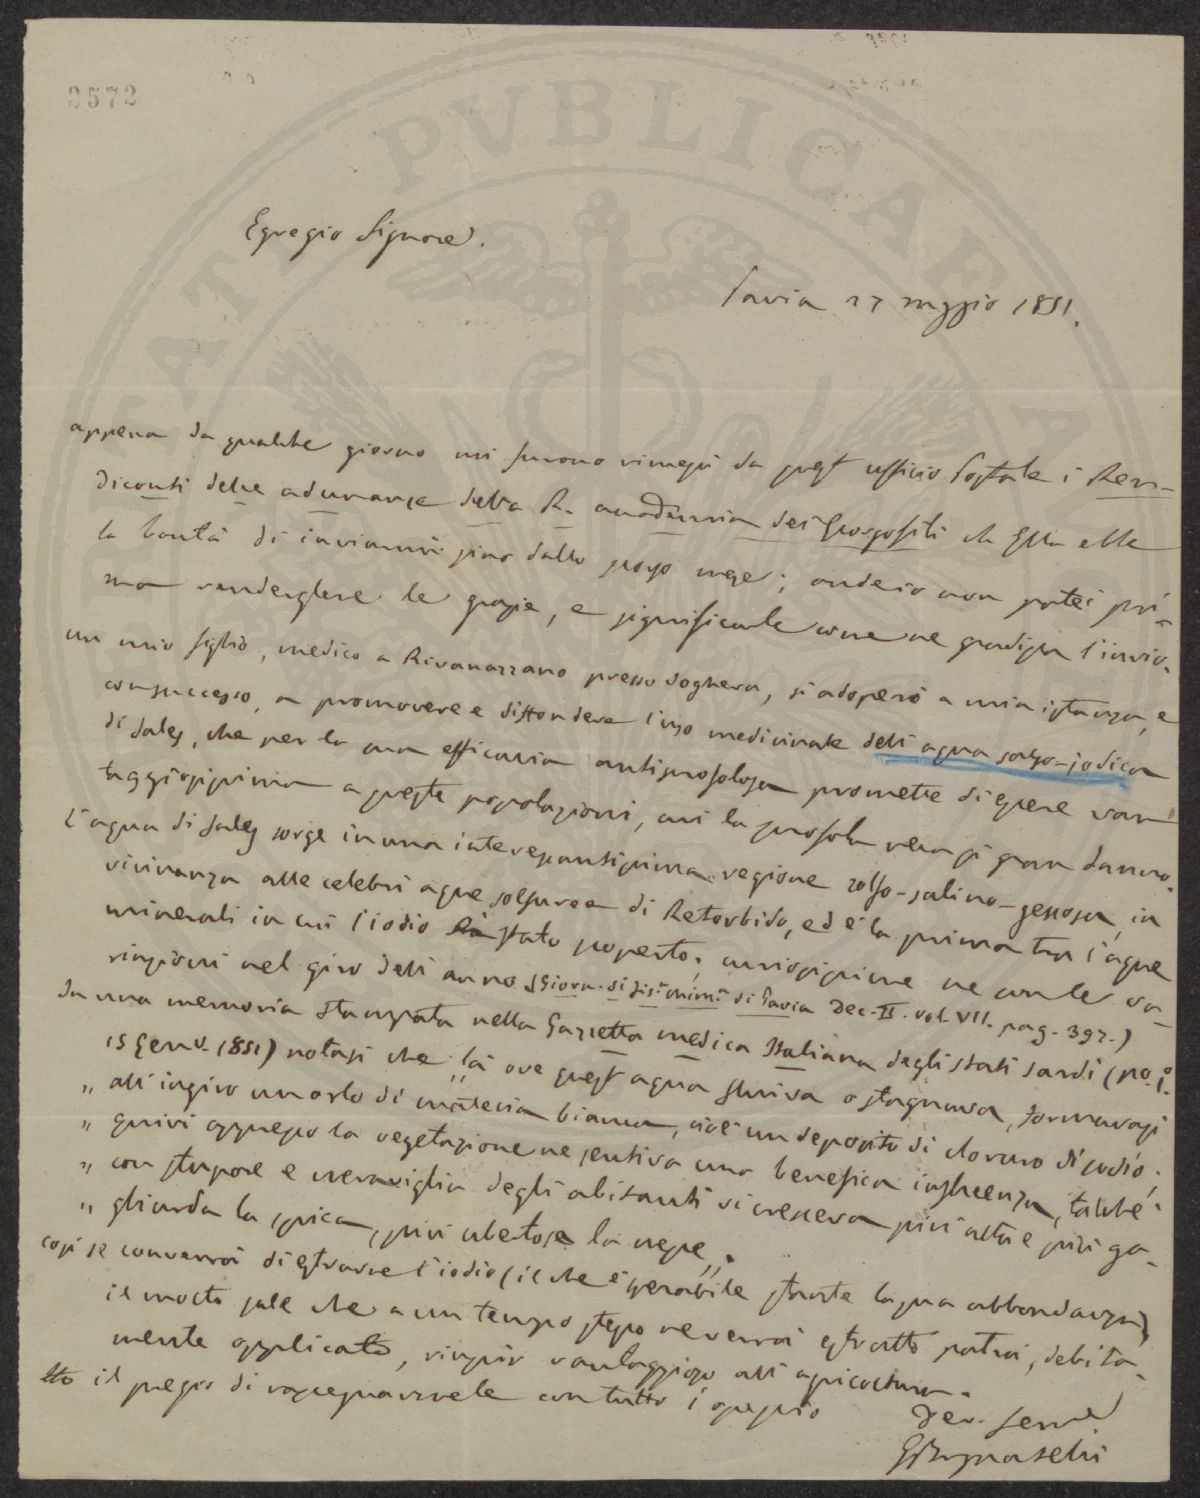 3572
PVBLICAE
Egregio Signore.
Pavia 27 maggio 1851.
appena da qualche giorno mi furono rimessi da quest ufficio Postale i Ren-
diconti delle adunanze della R. accademia dei Georgofili ch Ella ebbe
la bontà di inviarmi sino dallo scorso mese; onde io non potei pri-
ma renderglene le grazie, e significarle come ne gradissi l'invio.
un mio figlio, medico a Rivanazzano presso Voghera, si adoperò a mia istanza, e
con successo, a promovere e diffondere l'uso medicinale dell' acqua salso-jodica
di Sales, che per la sua efficacia antiscrofolosa promette di essere van-
taggiosissima a queste popolazioni, cui la scrofola reca sì gran danno.
L'acqua di Sales sorge in una interessantissima regione solfo-salino-gessosa, in
vicinanza alle celebri acque solfuree di Retorbido, ed è la prima tra l'acque
minerali in cui l'iodio sia stato scoperto; curiosissime ne sono le va-
riazioni nel giro dell' anno (Giorn. di fis. chim. di Pavia Dec. II. vol. VII. pag. 392.)
In una memoria stampata nella Gazzetta medica Italiana degli stati sardi (no. 1.
15 Genn. 1851) notasi che "là ove quest acqua fluiva o stagnava, formavasi
" all' ingiro un orlo di materia bianca, cioè un deposito di cloruro di sodio;
" quivi appresso la vegetazione ne sentiva una benefica influenza, talchè
" con stupore e meraviglia degli abitanti vi cresceva più alta e più ga-
" gliarda la spica, più ubertosa la messe".
così se converrà di estrarre l'iodio (il che è sperabile stante la sua abbondanza)
il molto sale che a un tempo stesso ne verrà estratto potrà, debita-
mente applicato, riuscir vantaggioso all' agricoltura.
Ho il pregio di rassegnarmele con tutto l'ossequio
Dev. Serv.
G Brugnatelli